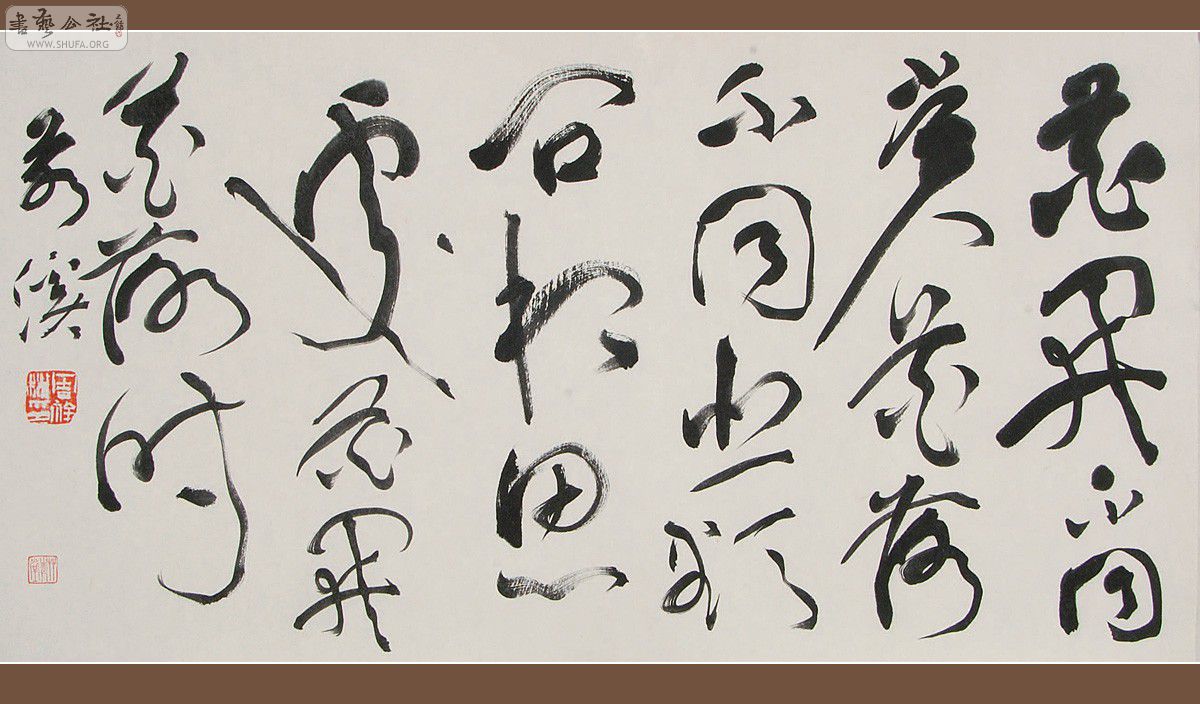 書藝公社
WWW.SHUFA.ORG
花開不同
賞花落
不同悲欲
問相思
處花開
花落时
若溪